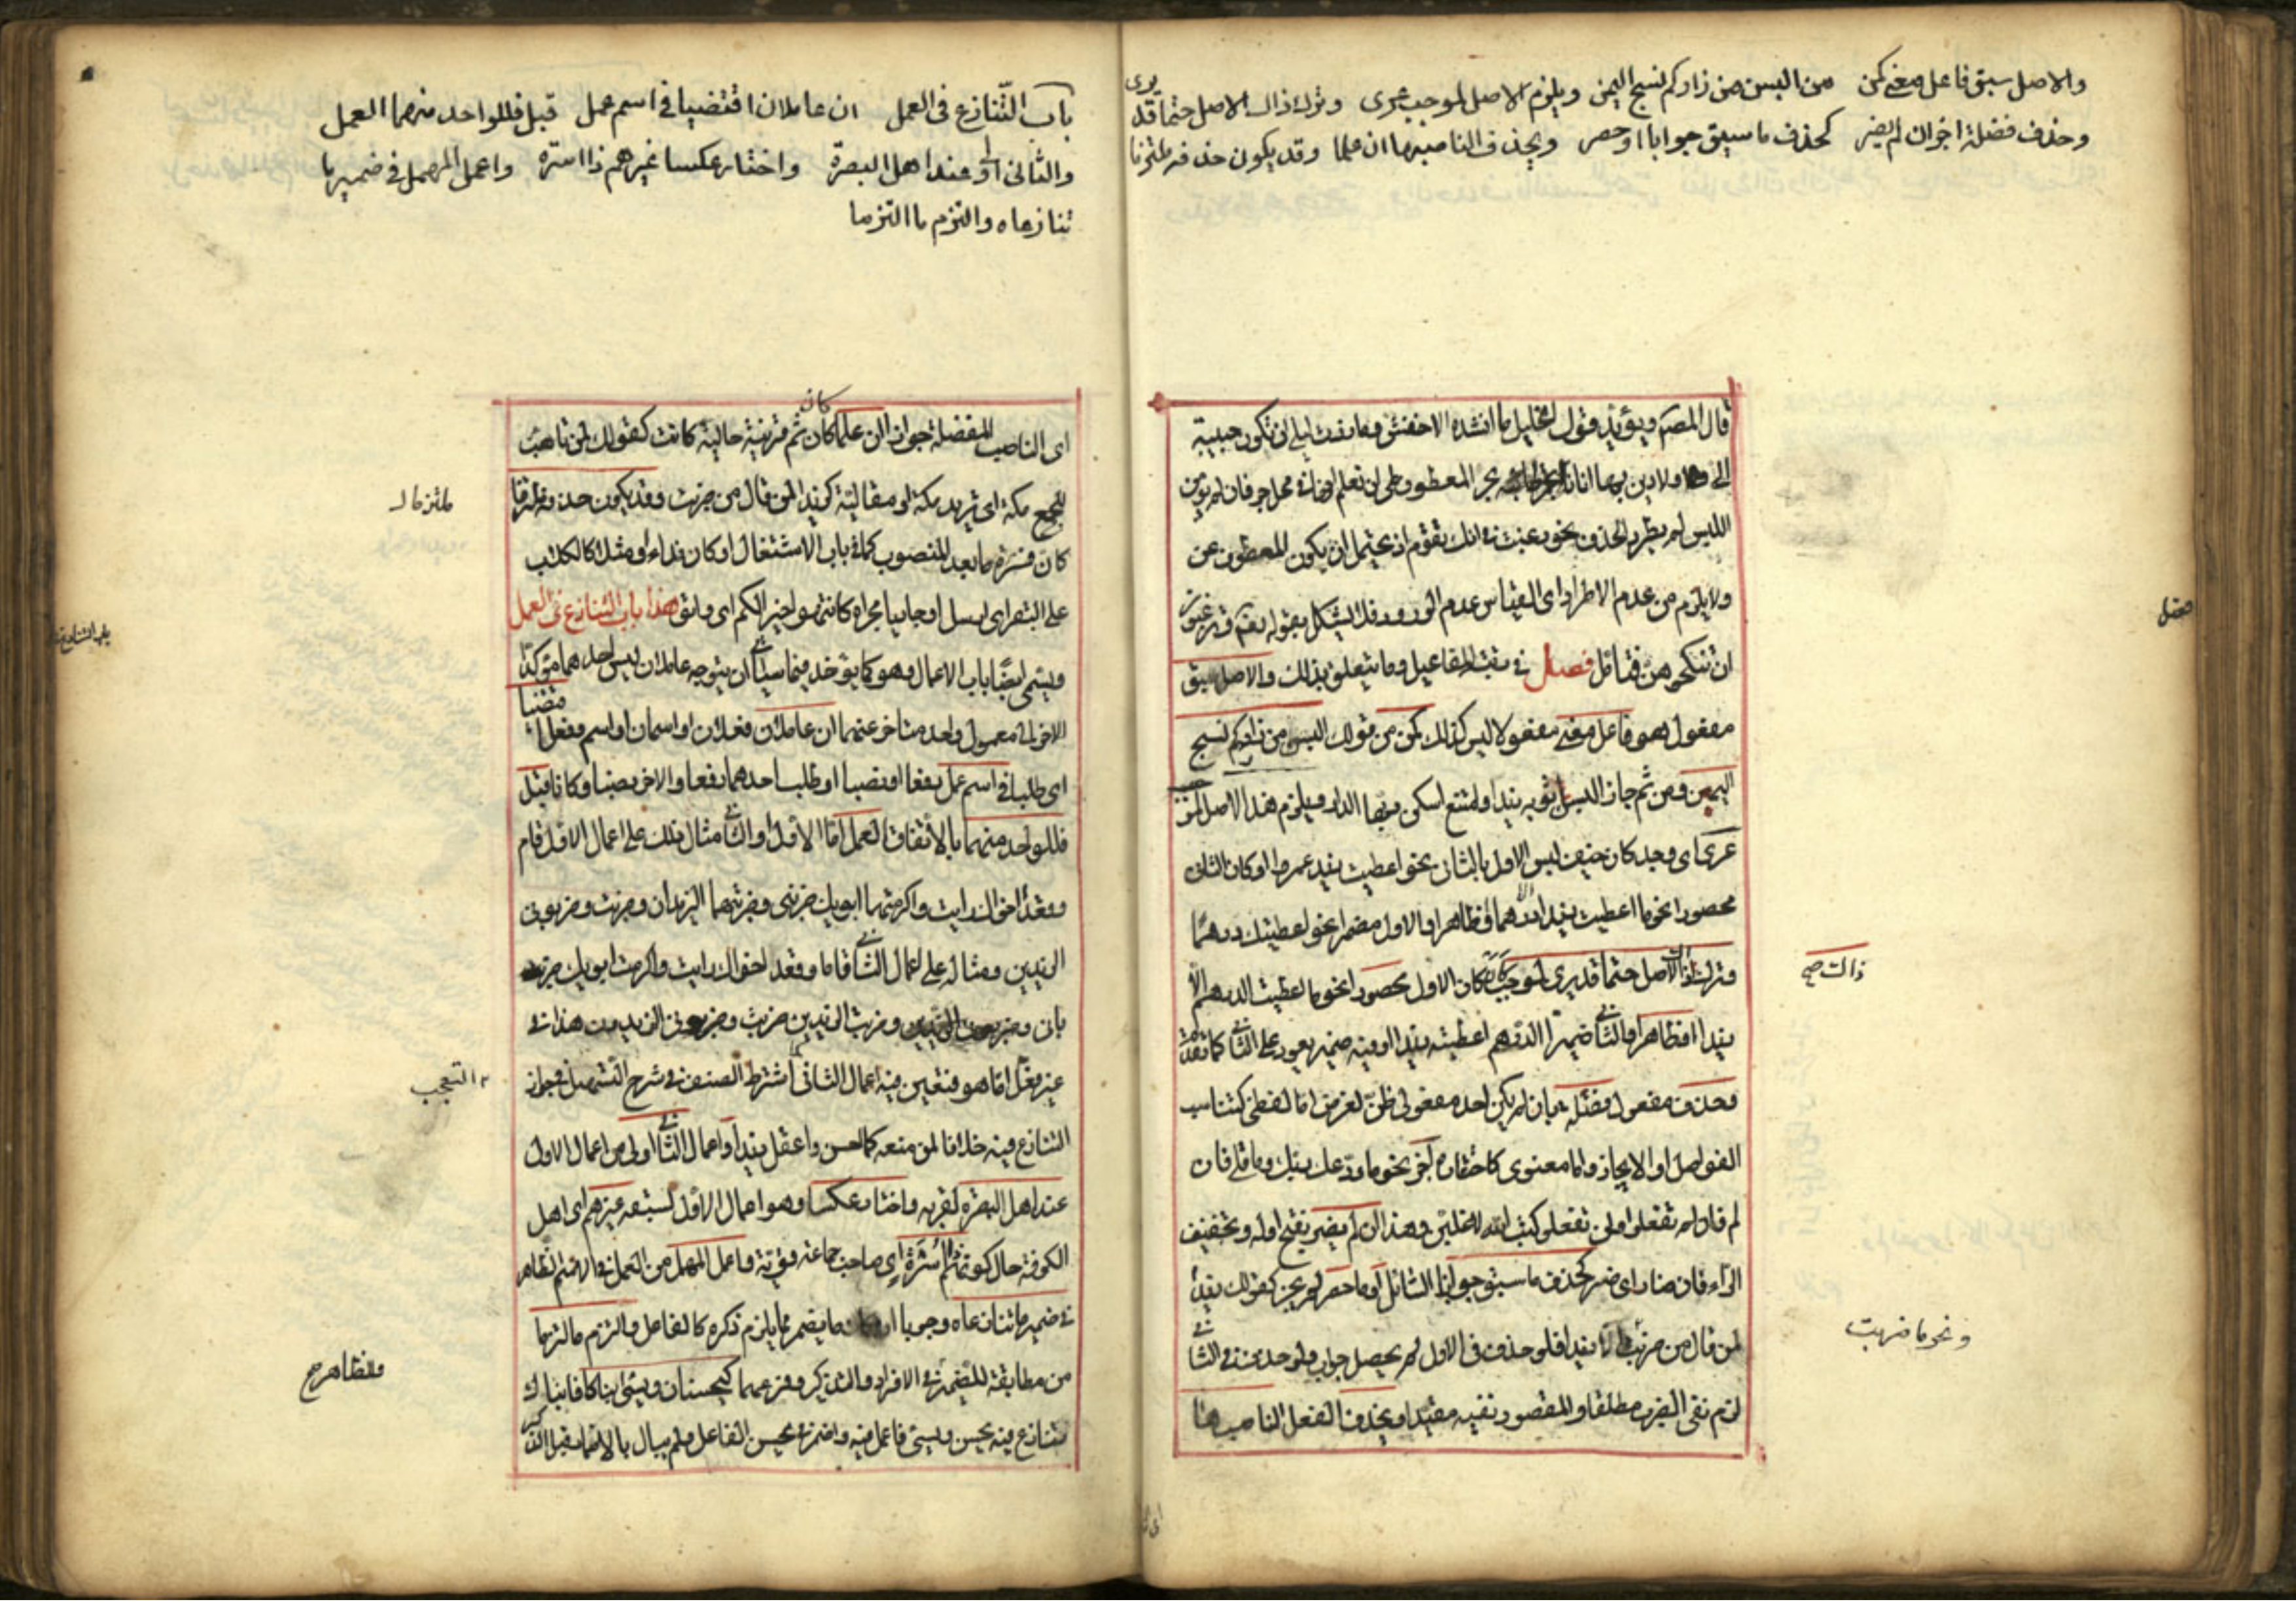 والاصل سبق فاعل معنى كمن من البسن من زاركم نسج اليمن ويلزم الاصل لموجب عرى وترك ذاك الاصل حتما قد يرى
وحذف فضلة اجز ان لم يضر كحذف ما سيق جوابا او حصر ويحذف الناصبها ان علما وقد يكون حذفه ملتزما
قال المصنف ويؤيد قول الخليل ما انشده الاخفش وما زرت ليلى ان تكون حبيبة
الى ولا دين بها انا بجر المعطوف على ان تعلم انه في محل جر فان لم يؤمن
اللبس لم يطرد الحذف نحو رغبت في انك تقوم اذ يحتمل ان يكون المحذوف عن
ولا يلزم من عدم الاطراد اى القياس عدم الورود فلا يشكل بقوله تعالى وترغبون
ان تنكحوهن فتامل فصل في رتبة المفاعيل وما يتعلق بذلك والاصل سبق
مفعول هو فاعل معنى مفعولا ليس كذلك كمن من قولك البسن من زاركم نسج
اليمن ومن ثم جاز البسن ثوبه زيدا وامتنع اسكن ربها الدار ويلزم هذا الاصل لموجب
عرى اى وجد كان خيف لبس الاول بالثانى نحو اعطيت زيد عمروا او كان الثانى
محصورا نحو ما اعطيت زيدا الا درهما او ظاهرا والاول مضمرا نحو اعطيتك درهما
وترك ذاك الاصل حتما قد يرى لموجب كان كان الاول محصورا نحو ما اعطيت الدرهم الا
زيدا او ظاهرا والثانى ضميرا الدرهم اعطيته زيدا او فيه ضمير يعود على الثانى كما تقدم
وحذف مفعول فضلة بان لم يكن احد مفعولى ظن لغرض اما لفظى كتناسب
الفواصل او الايجاز واما معنوى كاحتقاره اجز نحو ما ودعك ربك وما قلى فان
لم تفعلوا ولن تفعلوا كتب الله لاغلبن وهذا ان لم يضر بفتح اوله وتخفيف
الراء فان ضار اى ضر كحذف ما سيق جوابا لسائل او ما حصر لم يجز كقولك زيدا
لمن قال من ضربت ما ضربت الا زيدا فلو حذف في الاول لم يحصل جواب ولو حذف في الثانى
لزم نفى الضرب مطلقا والمقصود نفيه مقيدا ويحذف الفعل الناصبها
فصل
ذاك صح
ونحو ما ضربت
باب التنازع في العمل ان عاملان اقتضيا في اسم عمل قبل فللواحد منهما العمل
والثانى اولى عند اهل البصرة واختار عكسا غيرهم ذا اسره واعمل المهمل في ضمير ما
تنازعاه والتزم ما التزما
اى الناصب للفضلة جوازا ان علما كان كان ثم قرينة حالية كانت كقولك لمن تاهب
للحج مكة اى تريد مكة او مقالية كزيدا لمن قال من ضربت وقد يكون حذفه ملتزما
كان فسره ما بعد المنصوب كما في باب الاشتغال او كان نداء او مثلا كالكلاب
على البقر اى ارسل او جاريا مجراه كانتهوا خيرا لكم اى واتوا هذا باب التنازع في العمل
ويسمى ايضا باب الاعمال وهو كما يؤخذ فيما سياتى ان يتوجه عاملان ليس احدهما مؤكدا
للاخر الى معمول واحد متاخر عنهما ان عاملان فعلان او اسمان او اسم وفعل اقتضيا
اى طلبا في اسم عمل رفعا او نصبا او طلب احدهما رفعا والاخر نصبا وكانا قبل
فللواحد منهما بالاتفاق العمل اما الاول او الثانى مثال ذلك على اعمال الاول قام
وقعدا اخواك رايت واكرمتهما ابويك ضربنى وضربتهما الزيدان وضربت وضربونى
الزيدين ومثاله على اعمال الثانى قاما وقعد اخواك رايت واكرمت ابويك
وضربت الزيدين ضربت وضربونى الزيدون هذا في
غير فعل اما هو فتعين فيه اعمال الثانى كما اشترط المصنف في شرح التسهيل في جواز
التنازع فيه خلافا لمن منعه كما احسن واعقل بزيد واعمال الثانى اولى من اعمال الاول
عند اهل البصرة لقربه واختار عكسا وهو اعمال الاول لسبقه غيرهم اى اهل
الكوفة حال كونهم ذا اسرة اى صاحب جماعة قوية واعمل المهمل من العمل في الاسم الظاهر
في ضمير ما تنازعاه وجوبا ما يضمر مما يلزم ذكره كالفاعل والتزم ما التزما
من مطابقة للضمير في الافراد والتذكير وفرعهما كيحسنان ويسئ ابناكا فابناك
تنازع فيه يحسن ويسئ فاعمل فيه واضمر في يحسن الفاعل ولم يبال بالاضمار قبل الذكر
ملتزما
باب التنازع
التعجب
والظاهر صح